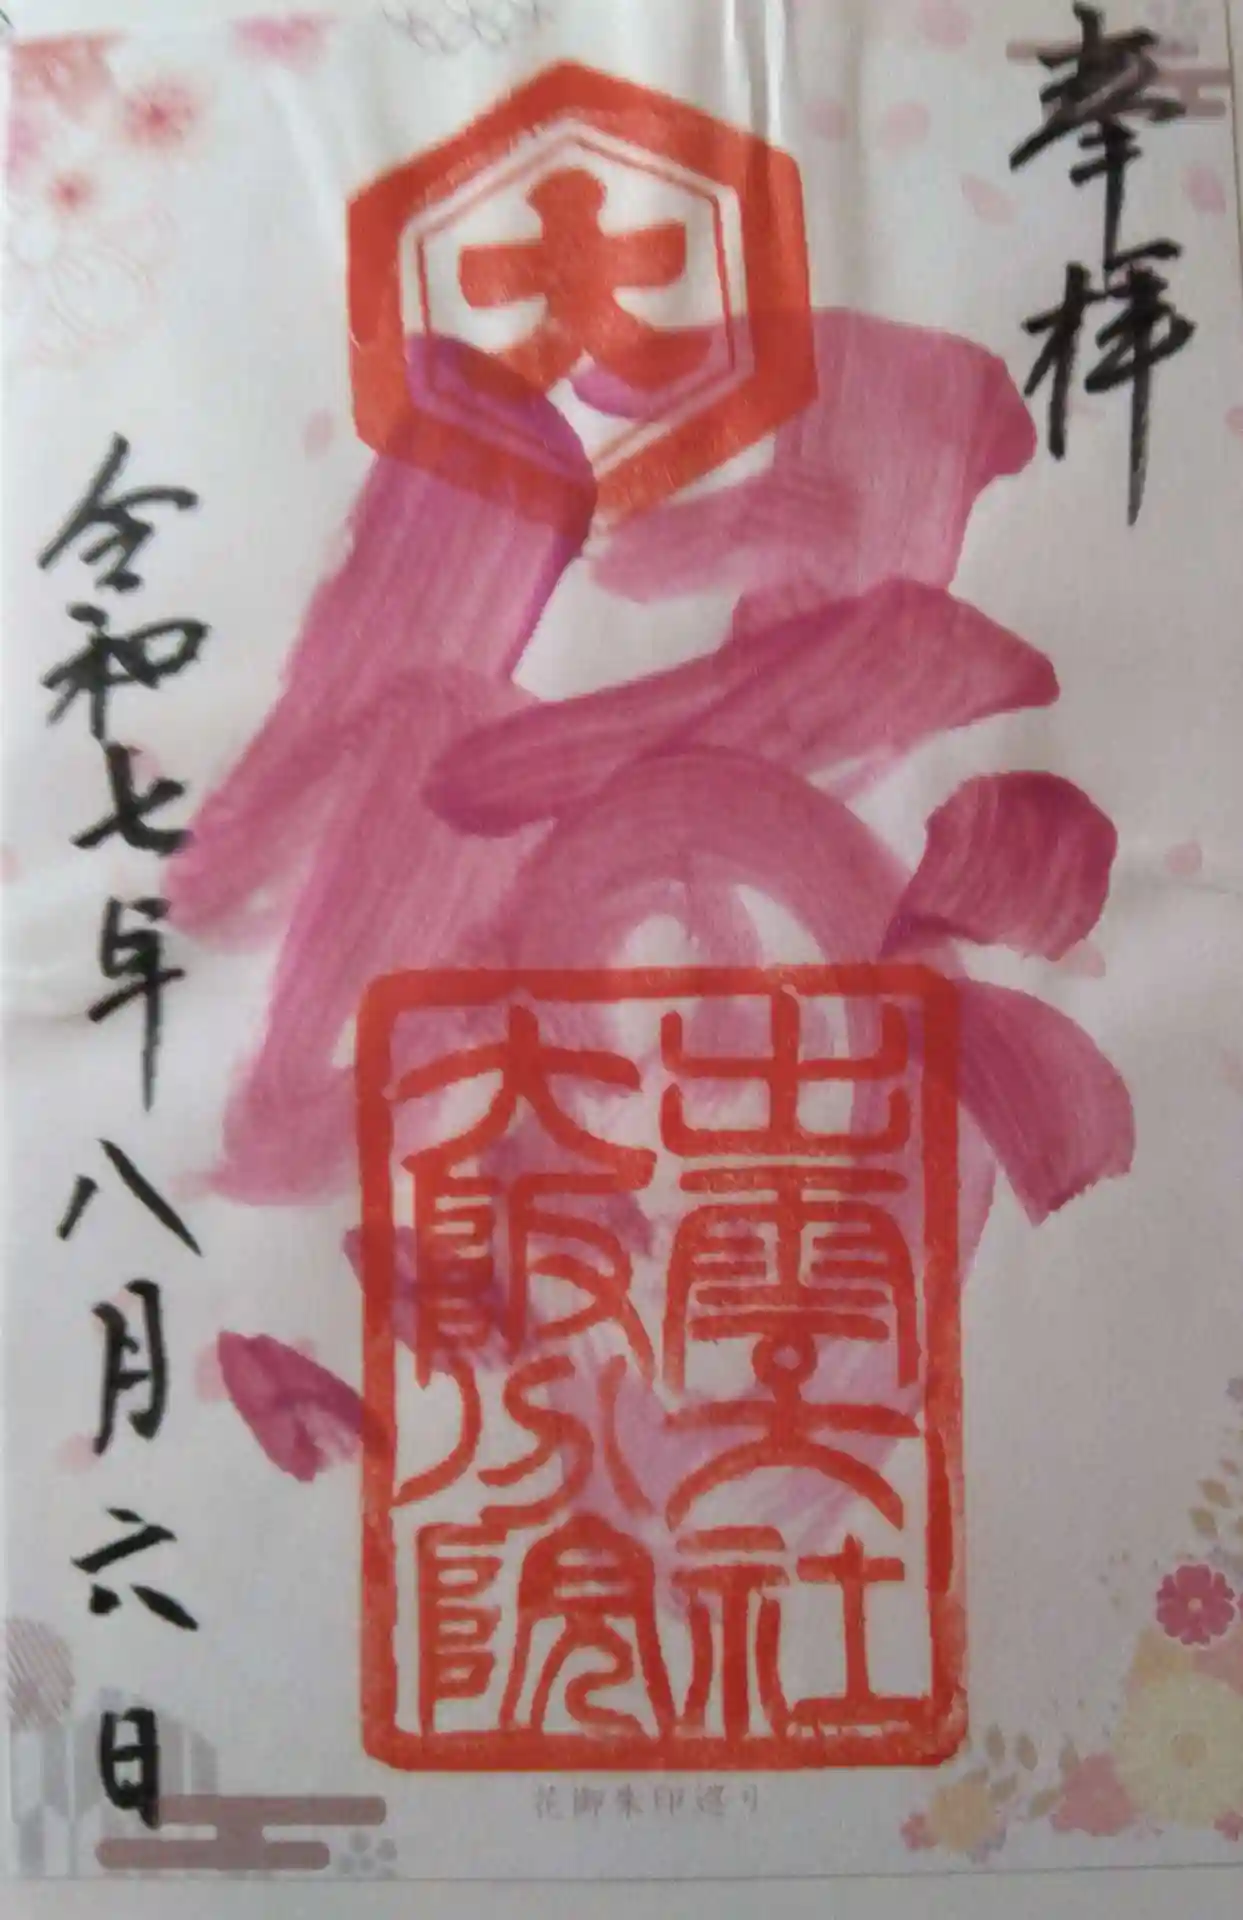 奉拝
大
出雲大社
大飯分院
令和七年八月六日
花御朱印巡り